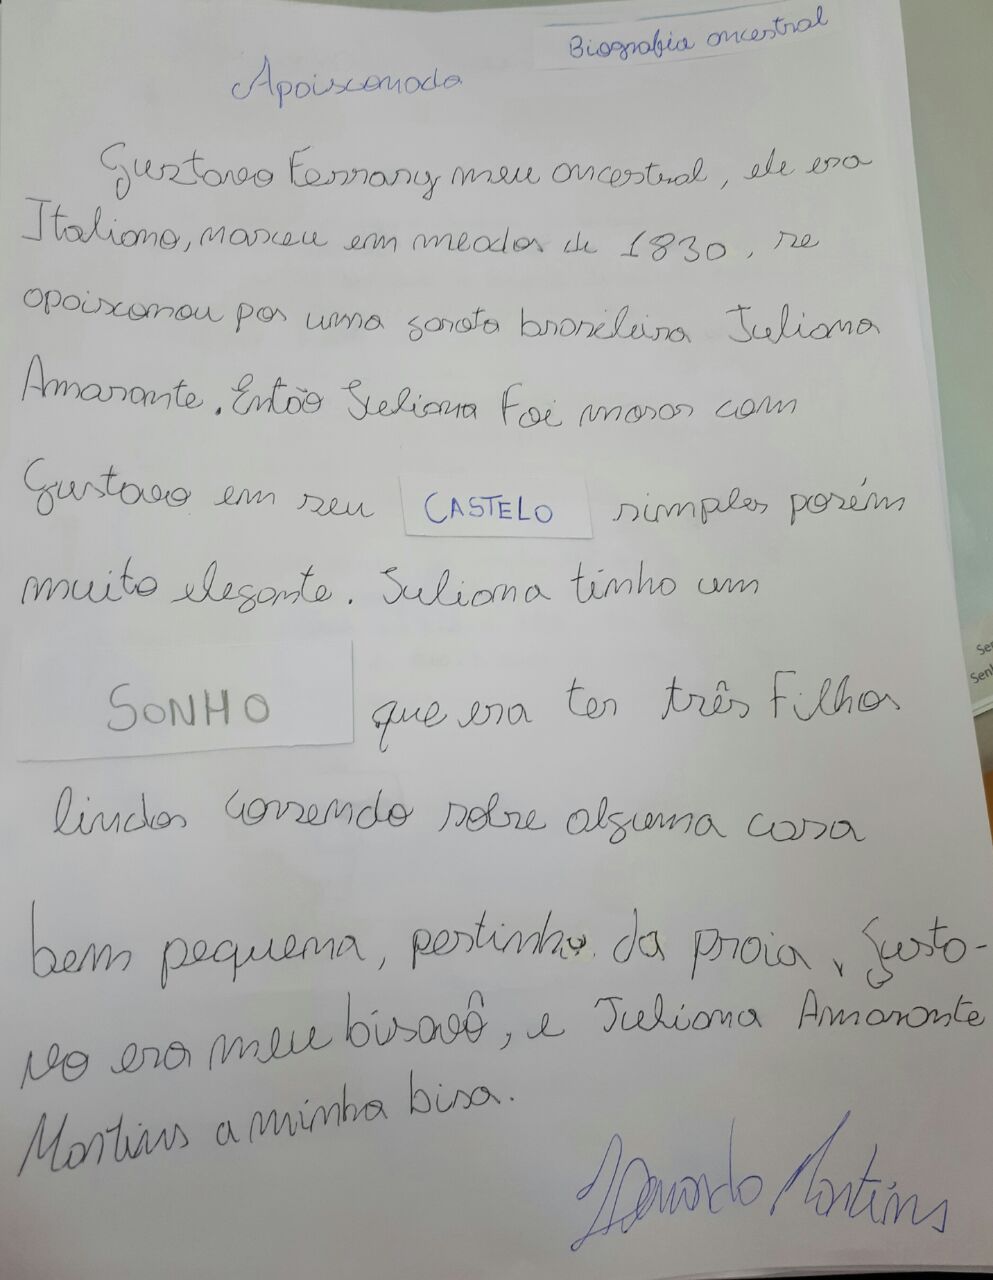 Biografia ancestral
Apaixonado
Gustavo Ferrary meu ancestral, ele era
Italiano, nasceu em meados de 1830, se
apaixonou por uma garota brasileira Juliana
Amarante. Então Juliana Foi morar com
Gustavo em seu CASTELO simples porém
muito elegante. Juliana tinha um
SONHO que era ter três Filhos
lindos correndo sobre alguma casa
bem pequena, pertinho da praia, Gusta-
vo era meu bisavô, e Juliana Amarante
Martins a minha bisa.
Martins
Se
Sen